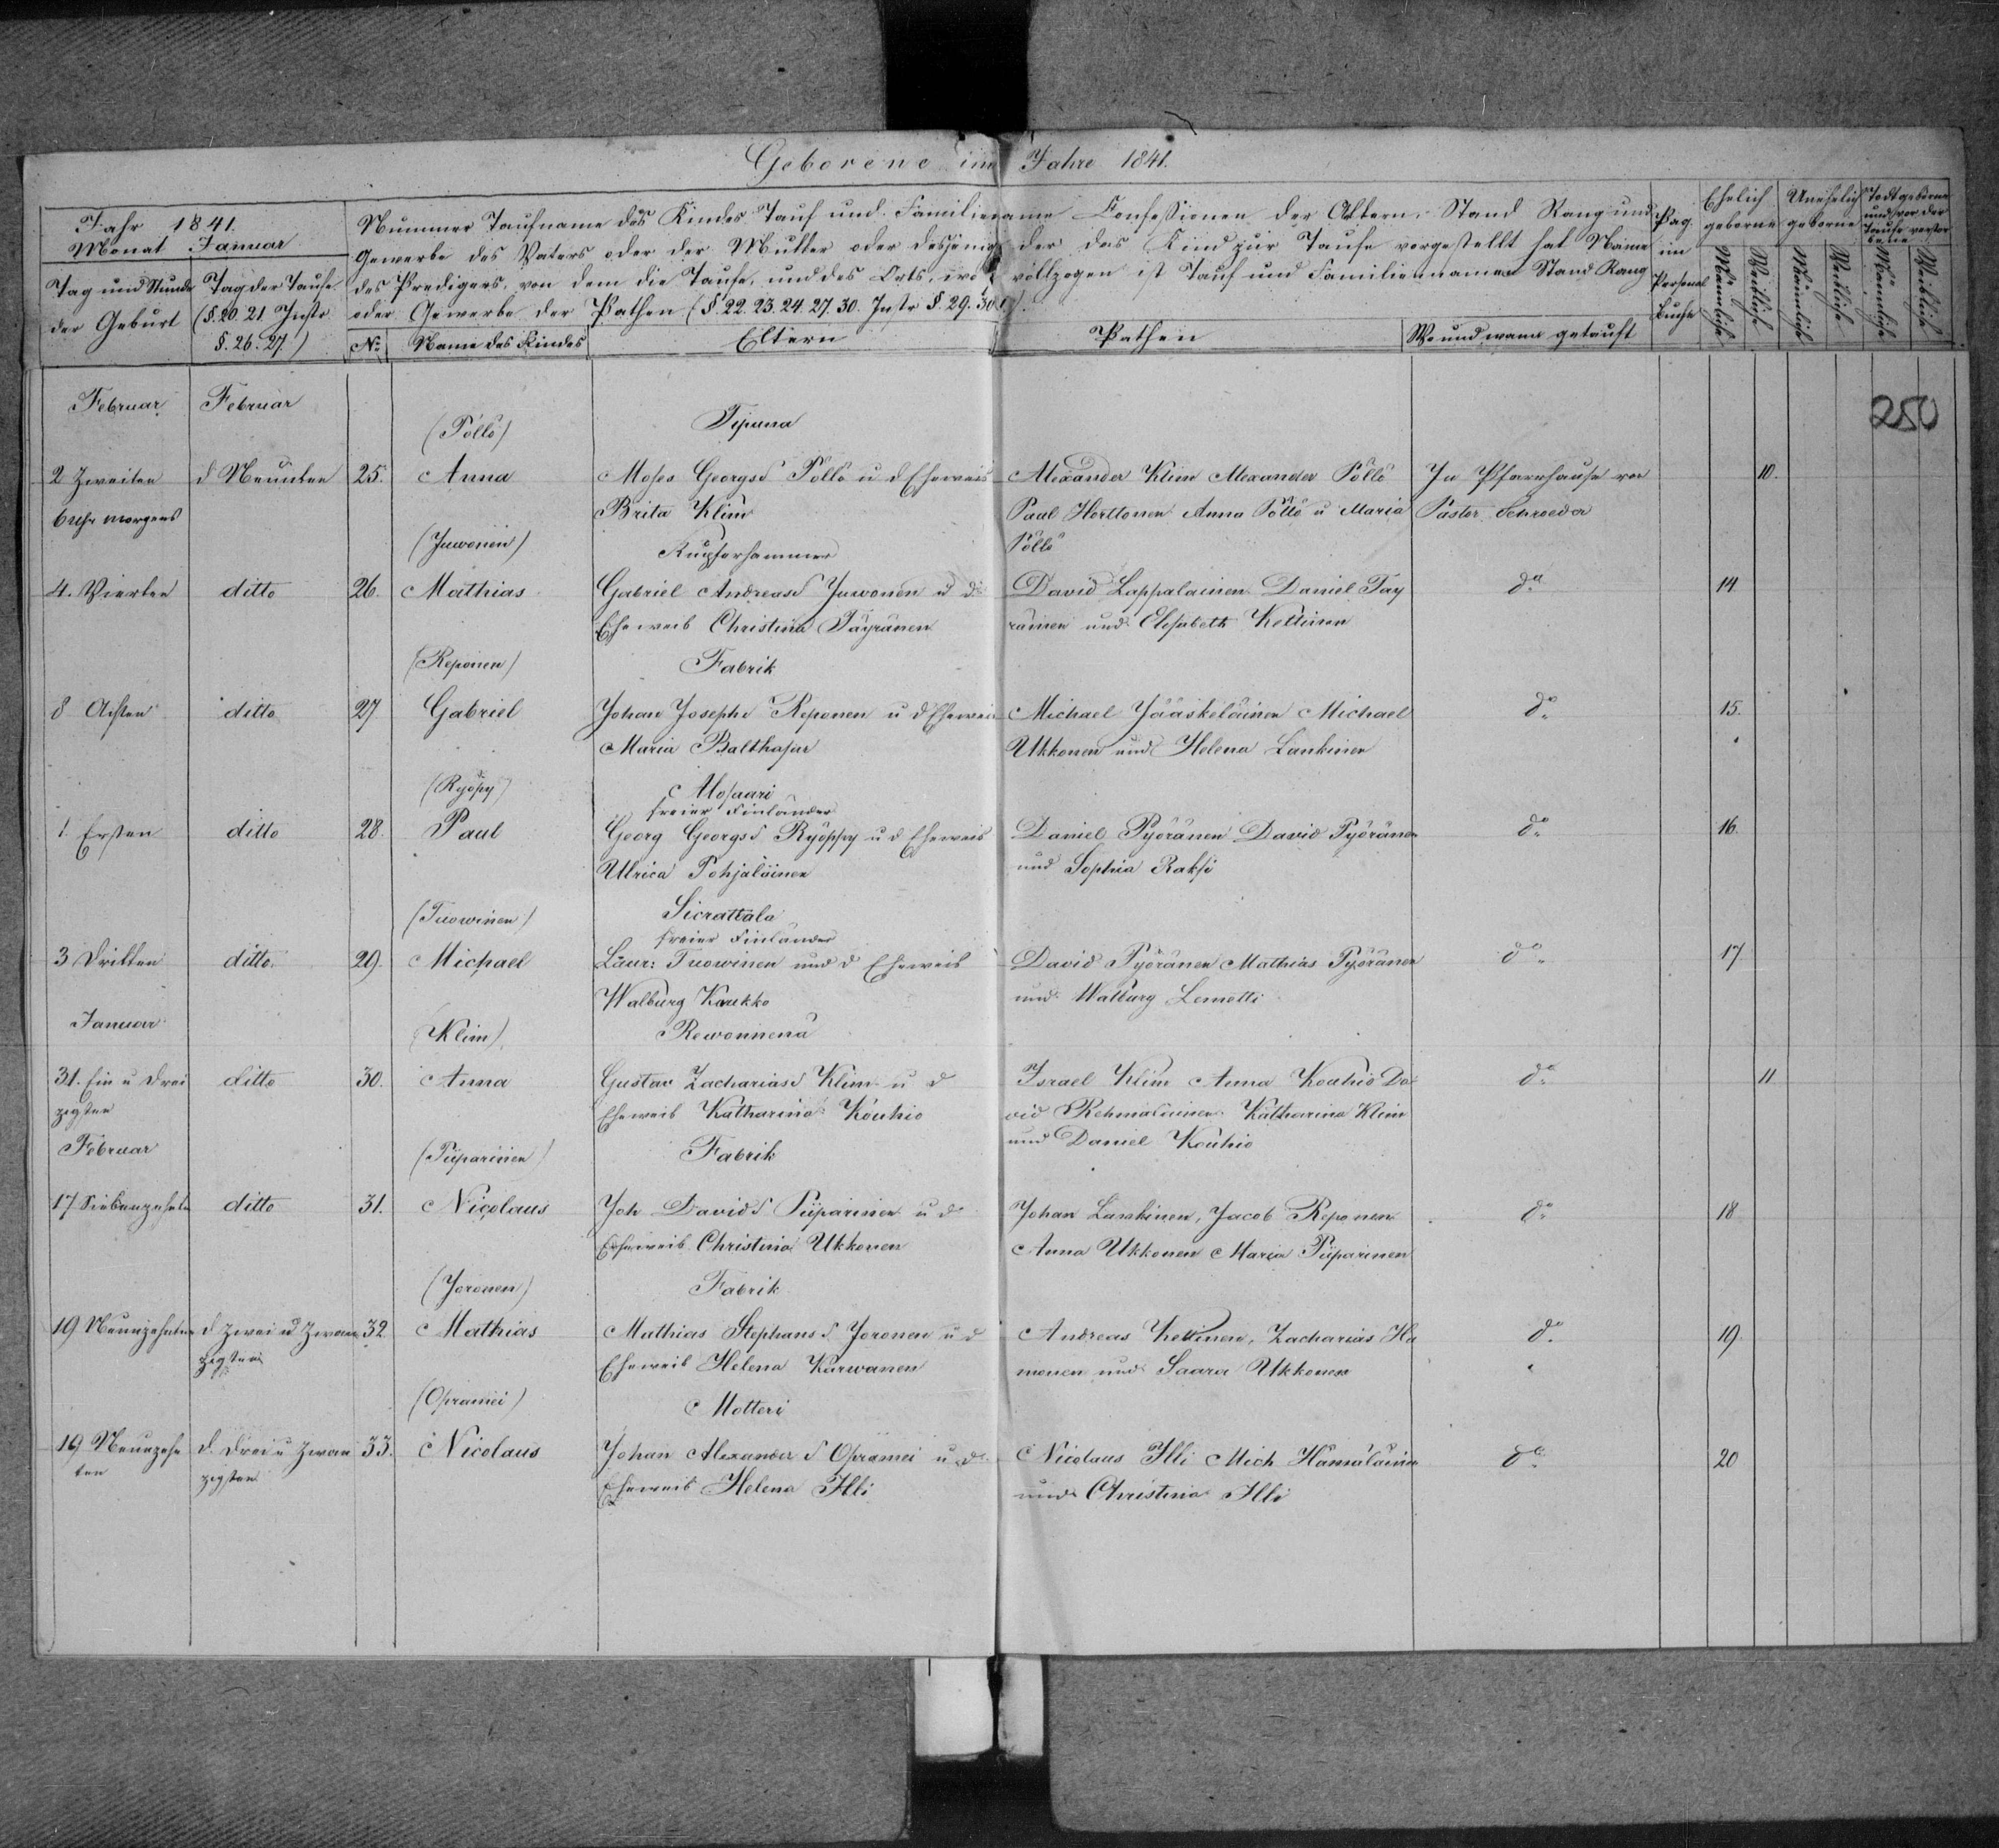 Geborene im Jahre 1841.
Jahr 1841.
Monat Januar
Tag und Stunde der Geburt
Tag der Taufe (§. 20. 21. Instr. §. 26. 27.)
Nummer Taufname des Kindes Tauf und Familienname Confessionen der Aeltern, Stand Rang und
Gewerbe des Vaters oder der Mutter oder desjenigen der das Kind zur Taufe vorgestellt hat Name
des Predigers, von dem die Taufe, und des Orts, wo vollzogen ist Tauf und Familiennamen Stand Rang
oder Gewerbe der Pathen (§ 22. 23. 24. 27. 30. Instr § 29. 30.)
No Name des Kindes Eltern Pathen Wo und wann getauft
Pag. im Personal Buche
Ehelich geborne Männliche Weibliche
Unehelich geborne Männlich Weibliche
Todtgeborne und vor der Taufe verstorbene Männliche Weibliche
250
Februar Februar
(Pöllö) Tipuna
2 Zweiten d Neunten 25. Anna Moses Georgs Pöllö u d Eheweib Alexander Klim Alexander Pöllö In Pfarrhause von 10.
6 Uhr morgens Brita Klim Paul Horttonen Anna Pöllö u Maria Pastor Schroeder
(Juwonen) Kupferhammer Pöllö
4. Vierten ditto 26. Mathias Gabriel Andreas Juwonen u d David Lappalainen Daniel Täy do 14
Eheweib Christina Täyränen ränen und Elisabeth Kettunen
(Reponen) Fabrik
8 Achten ditto 27 Gabriel Johan Josephs Reponen u d Eheweib Michael Jääskeläinen Michael do 15.
Maria Balthasar Ukkonen und Helena Lankinen
(Ryöpy)
freier Finländer
1. Ersten ditto 28. Paul Georg Georgs Ryöppy u d Eheweib Daniel Pyöränen David Pyöränen do 16.
Ulrica Pohjaläinen und Sophia Raksi
(Tuowinen)
freier Finländer
3 Dritten ditto. 29. Michael Laur: Tuowinen und d Eheweib David Pyöränen Mathias Pyöränen do 17
Walburg Kaukko und Walburg Lemetti
Januar (Klim) Rewonnenä
31. Ein u Drei ditto 30. Anna Gustav Zacharias Klim u d Israel Klim Anna Kouhio Da do 11
zigsten Eheweib Katharina Kouhio vid Rehmäläinen Katharina Klim
und Daniel Kouhio
Februar (Piiparinen) Fabrik
17 Siebenzehnten ditto 31. Nicolaus Joh Davids Piiparinen u d Johan Lankinen, Jacob Reponen do 18
Eheweib Christina Ukkonen Anna Ukkonen Maria Piiparinen
(Joronen) Fabrik
19 Neunzehnten d Zwei u Zwan 32. Mathias Mathias Stephans Joronen u d Andreas Kettunen, Zacharias Ha do 19.
zigsten Eheweib Helena Karwanen monen und Saara Ukkonen
(Opramei) Motteri
19 Neunzehn d Drei u Zwan 33. Nicolaus Johan Alexander s Opramei u d Nicolaus Illi Mich Hämäläinen do 20
ten zigsten Eheweib Helena Illi und Christina Illi